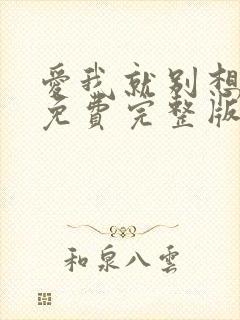 愛我就別想
免費完整版
和泉八雲